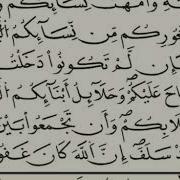 وَأُمَّهَٰتُ نِسَآئِكُمْ
حُجُورِكُم مِّن نِّسَآئِكُمُ
فَإِن لَّمْ تَكُونُوا۟ دَخَلْتُم
ـَاحَ عَلَيْكُمْ وَحَلَٰٓئِلُ أَبْنَآئِكُمُ
ـلَٰبِكُمْ وَأَن تَجْمَعُوا۟ بَيْنَ
ـدْ سَلَفَ إِنَّ ٱللَّهَ كَانَ غَفُو